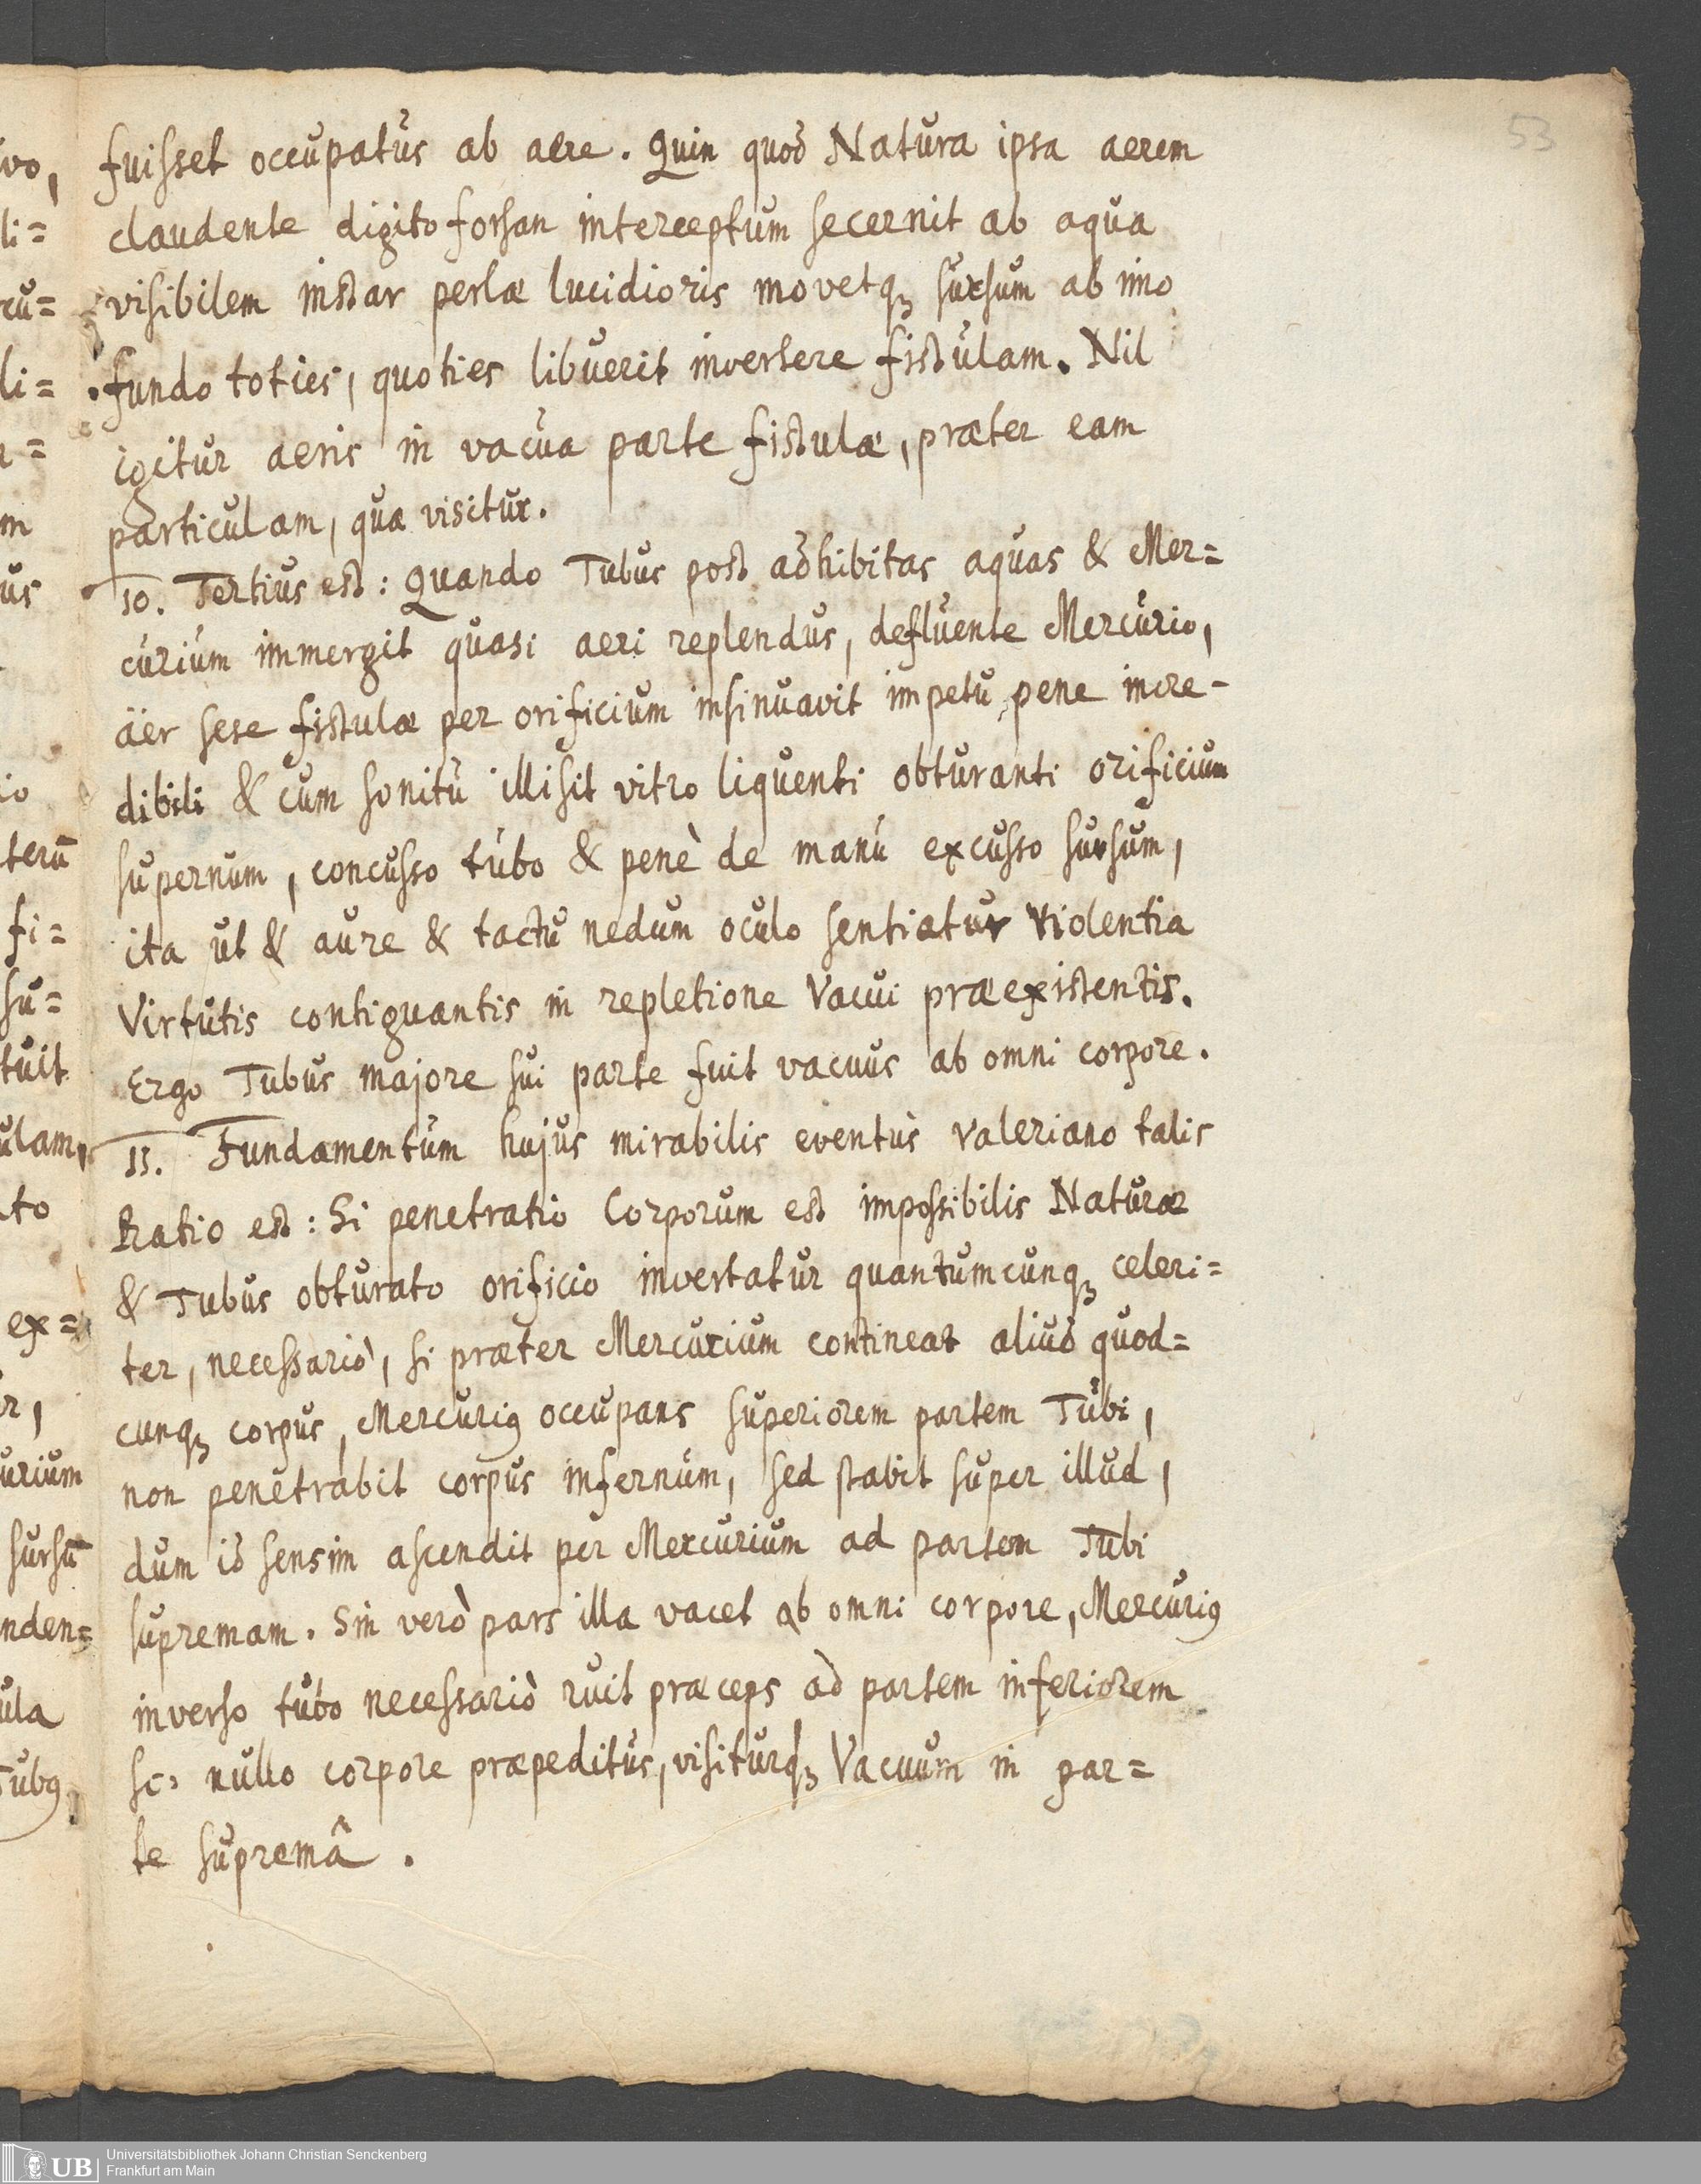 53
fuisset occupatus ab aere. Quin quod Natura ipsa aerem
claudente digito forsan interceptum secernit ab aqua
visibilem instar perlæ lucidioris movetq; sursum ab imo
fundo toties, quoties libuerit invertere fistulam. Nil
igitur aeris in vacua parte fistulæ, præter eam
particulam, quæ visitur.
10. Tertius est: Quando Tubus post adhibitas aquas & Mer=
curium immergit quasi aeri replendus, defluente Mercurio,
äer sese fistulæ per orificium insinuavit impetu pene incre-
dibili & cum sonitu illisit vitro liquenti obturanti orificium
supernum, concusso tubo & penè de manu excusso sursum,
ita ut & aure & tactu nedum oculo sentiatur violentia
Virtutis contiguantis in repletione Vacui præexistentis.
Ergo Tubus majore sui parte fuit vacuus ab omni corpore.
11. Fundamentum hujus mirabilis eventus Valeriano talis
Ratio est: Si penetratio Corporum est impossibilis Naturæ
& Tubus obturato orificio invertatur quantumcunq; celeri=
ter, necessariò, si præter Mercurium contineat aliud quod=
cunq; corpus, Mercurig occupans superiorem partem Tubi,
non penetrabit corpus infernum, sed stabit super illud,
dum id sensim ascendit per Mercurium ad partem Tubi
supremam. Sin verò pars illa vacet ab omni corpore, Mercurig
inverso tubo necessariò ruit præceps ad partem inferiorem
sc: nullo corpore præpeditus, visiturq; Vacuum in par=
te supremâ.
UB Universitätsbibliothek Johann Christian Senckenberg
Frankfurt am Main